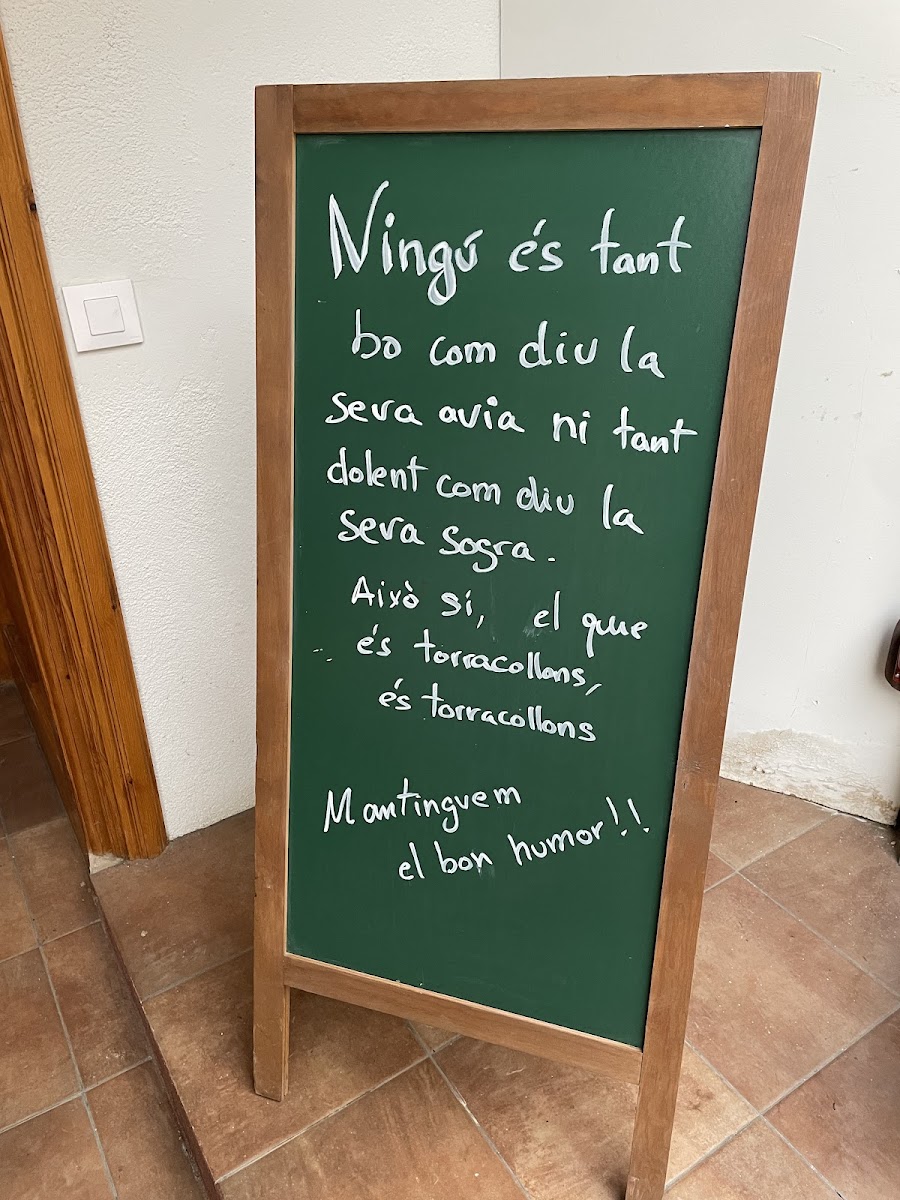 Ningú és tant
bo com diu la
seva avia ni tant
dolent com diu la
seva sogra.
Això sí, el que
és torracollons,
és torracollons
Mantinguem
el bon humor!!